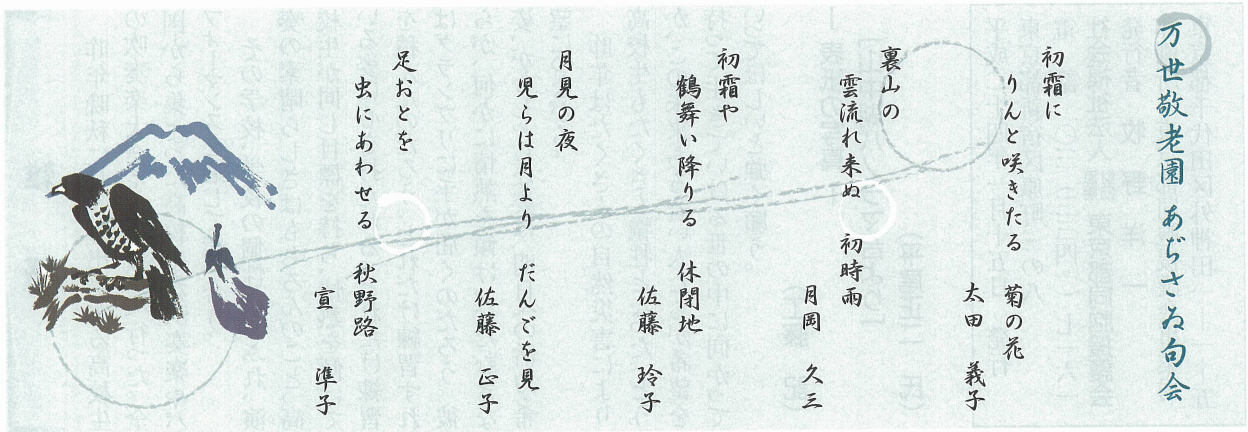 万世敬老園 あぢさゐ句会
初霜に
りんと咲きたる 菊の花
太田 義子
裏山の
雲流れ来ぬ 初時雨
月岡 久三
初霜や
鶴舞い降りる 休閑地
佐藤 玲子
月見の夜
児らは月より だんごを見
佐藤 正子
足おとを
虫にあわせる 秋野路
宣 準子